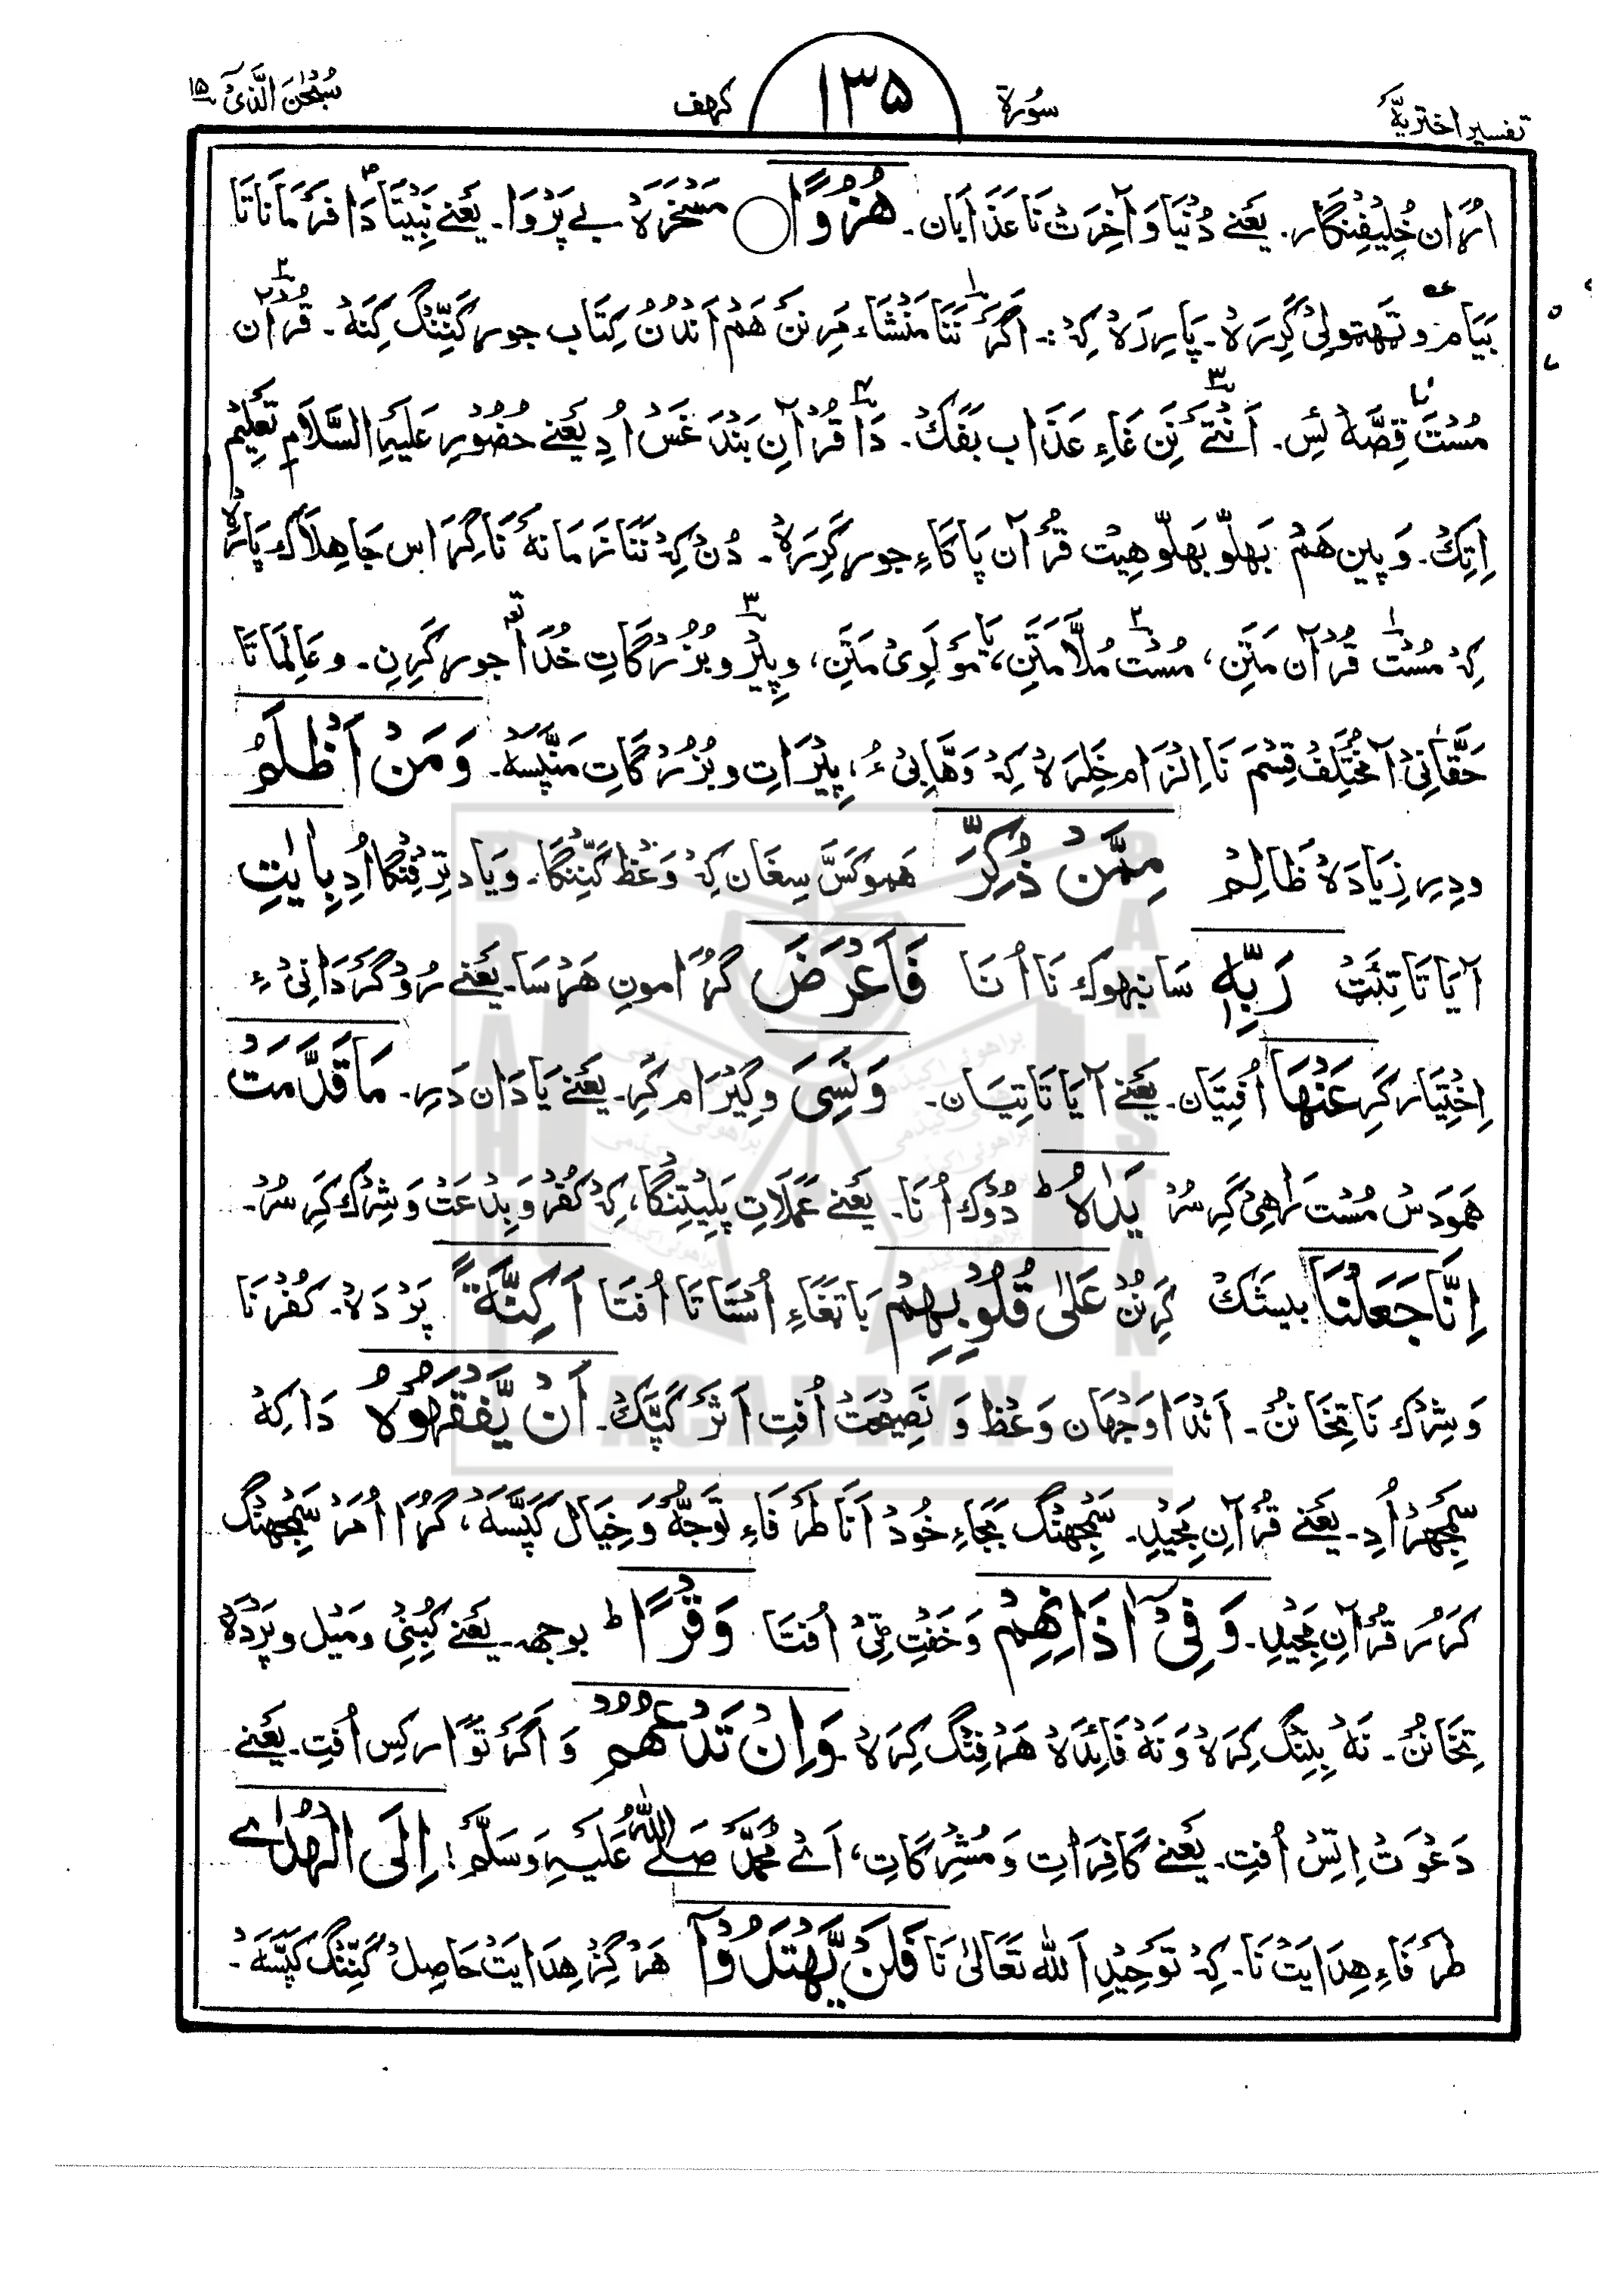 تفسیر اختریہّ سُورة ۱۳۵ کہف سُبْحٰنَ الَّذِیْٓ ۱۵
اُرْان خُلِیْفِنْگار۔ یَعْنے دُنْیَا وَ آخِرَتْ نَا عَذَابَان۔ هُزُوًا ○ مَسْخَرَہْ بے پَرْوَا۔ یَعْنے نِیْتَا دَا فَرْمَانَاتَا
اَگَرْ نَنَا مَنْشَاء مَرِ نَنْ هَمْ اَنْدُنْ کِتَاب جوڑ کَنِّنْگ کِنَہْ۔ قُرْآن
مُسْتَ نَا قِصَّہْ ئسِ۔ اَنْتَےْ نَنْ غَاءِ عَذَاب بَفَکْ۔ دَا قُرْآنِ بَنْدَغَسْ اُدِ یَعْنے حضُوْرِ عَلَیْہِ السَّلَام تَعْلِیْم
اِتِکْ۔ وَ پین هَمْ بَهلّو بَهلّو هِیْت قُرْآن پَاکَاءِ جوڑ کَرِرَہْ۔ دُنْ کِہْ نَنَا زَمَانَہْ نَا گِڑَاس جَاهِلَاکْ پَارَہْ
کِہْ مُسْتْ قُرْآن مَتَنِ، مُسْت مُلَّا مَتَنِ، یَا مَوْلَوِیْ مَتَنِ، و پِیْر و بُزُرْگَاتِ خُدَا جوڑ کَرِنِ۔ و عَالِمَاتَا
حَقَّانِیْ آ مُخْتَلِفْ قِسْمَ نَا اِلْزَام خَلِرَہْ کِہْ وَهَّابِیْ ءُ، پِیْرَاتِ و بُزُرْگَاتِ مَنْپَسَہْ۔ وَمَنْ اَظْلَمُ
ودِیر زِیَادَہْ ظَالِمْ مِمَّنْ ذُكِّرَ هَمو کَسَّ سِغَان کِہْ وَعْظ کَنِّنْگا۔ وَ یَاد تِرِفِنْگا اُدِ بِاٰیٰتِ
آیَاتَا تِئَتْ رَبِّهٖ سَانبهوک نَا اُنَا فَاَعْرَضَ گُڑَا مونِ هَرْسَا۔ یَعْنے رُوْگَرْدَانِیْ ءِ
اِخْتِیَار کَرِ عَنْهَا اُفْتِیَان۔ یَعْنے آیَاتَاتِیَان۔ وَنَسِیَ و گِیْرَام کَرِ۔ یَعْنے یَادَان دَرِ۔ مَا قَدَّمَتْ
هَمو دَسْ مُسْت رَاهِیْ کَرِ سُرْ یَدٰهُ ؕ دُوْک اُنَا۔ یَعْنے عَمَلَاتِ پَلِیْتِنْگا، کِہْ کُفْرْ وَ بِدْعَتْ وَ شِرْك کَرِ سُرْ۔
اِنَّا جَعَلْنَا بیشَكْ کَرِنُنْ عَلٰی قُلُوْبِهِمْ بَاتَغَاءِ اُسْتَاتَا اُفْتَا اَكِنَّةً پَرْدَہْ۔ کُفْرْنَا
وَ شِرْك نَا تِخَانُنْ۔ اَنْدَا وَجْهَان وَعْظ وَ نَصِیْحَتْ اُفْتِ اَثَرْ کَپَّکْ۔ اَنْ یَّفْقَهُوْهُ دَا کِہْ
سَمْجِھْرْ اُدِ۔ یَعْنے قُرْآنِ مَجِیْدِ۔ سَمْجِھِنْگ بَجَاءِ خُودْ اَنَا طَرْفَاءِ تَوَجُّہْ وَ خِیَال کَپَّسَہْ، گُڑَا اُمَرْ سَمْجِھِنْگ
کَرُر قُرْآنِ مَجِیْدِ۔ وَفِیْٓ اٰذَانِهِمْ وَ خَفْتِ ٹِیْ اُفْتَا وَقْرًا ؕ بوجھ۔ یَعْنے کُبِنِیْ و مَیْل و پَرْدَہْ
تِخَانُنْ۔ نَہْ بِنِنْگ کِرَہْ وَ نَہْ فَائِدَہْ هَرْفِنْگ کِرَہْ وَاِنْ تَدْعُهُمْ وَ اَگَرْ تَوَّار کِسِ اُفْتِ۔ یَعْنے
دَعْوَتْ اِتِسْ اُفْتِ۔ یَعْنے کَافِرَاتِ وَ مُشْرِکَاتِ، اَےْ مُحَمَّدْ صَلَّے اللّٰہُ عَلَیْہِ وَسَلَّمْ! اِلَی الْهُدٰی
طَرْفَاءِ هِدَایَتْ نَا۔ کِہْ تَوْحِیْدِ اَللّٰہ تَعَالیٰ نَا فَلَنْ یَّهْتَدُوْٓا هَرْگِزْ هِدَایَتْ حَاصِلْ کَنِّنْگ کَپَّسَہْ۔
BRAHUI ACADEMY PAKISTAN